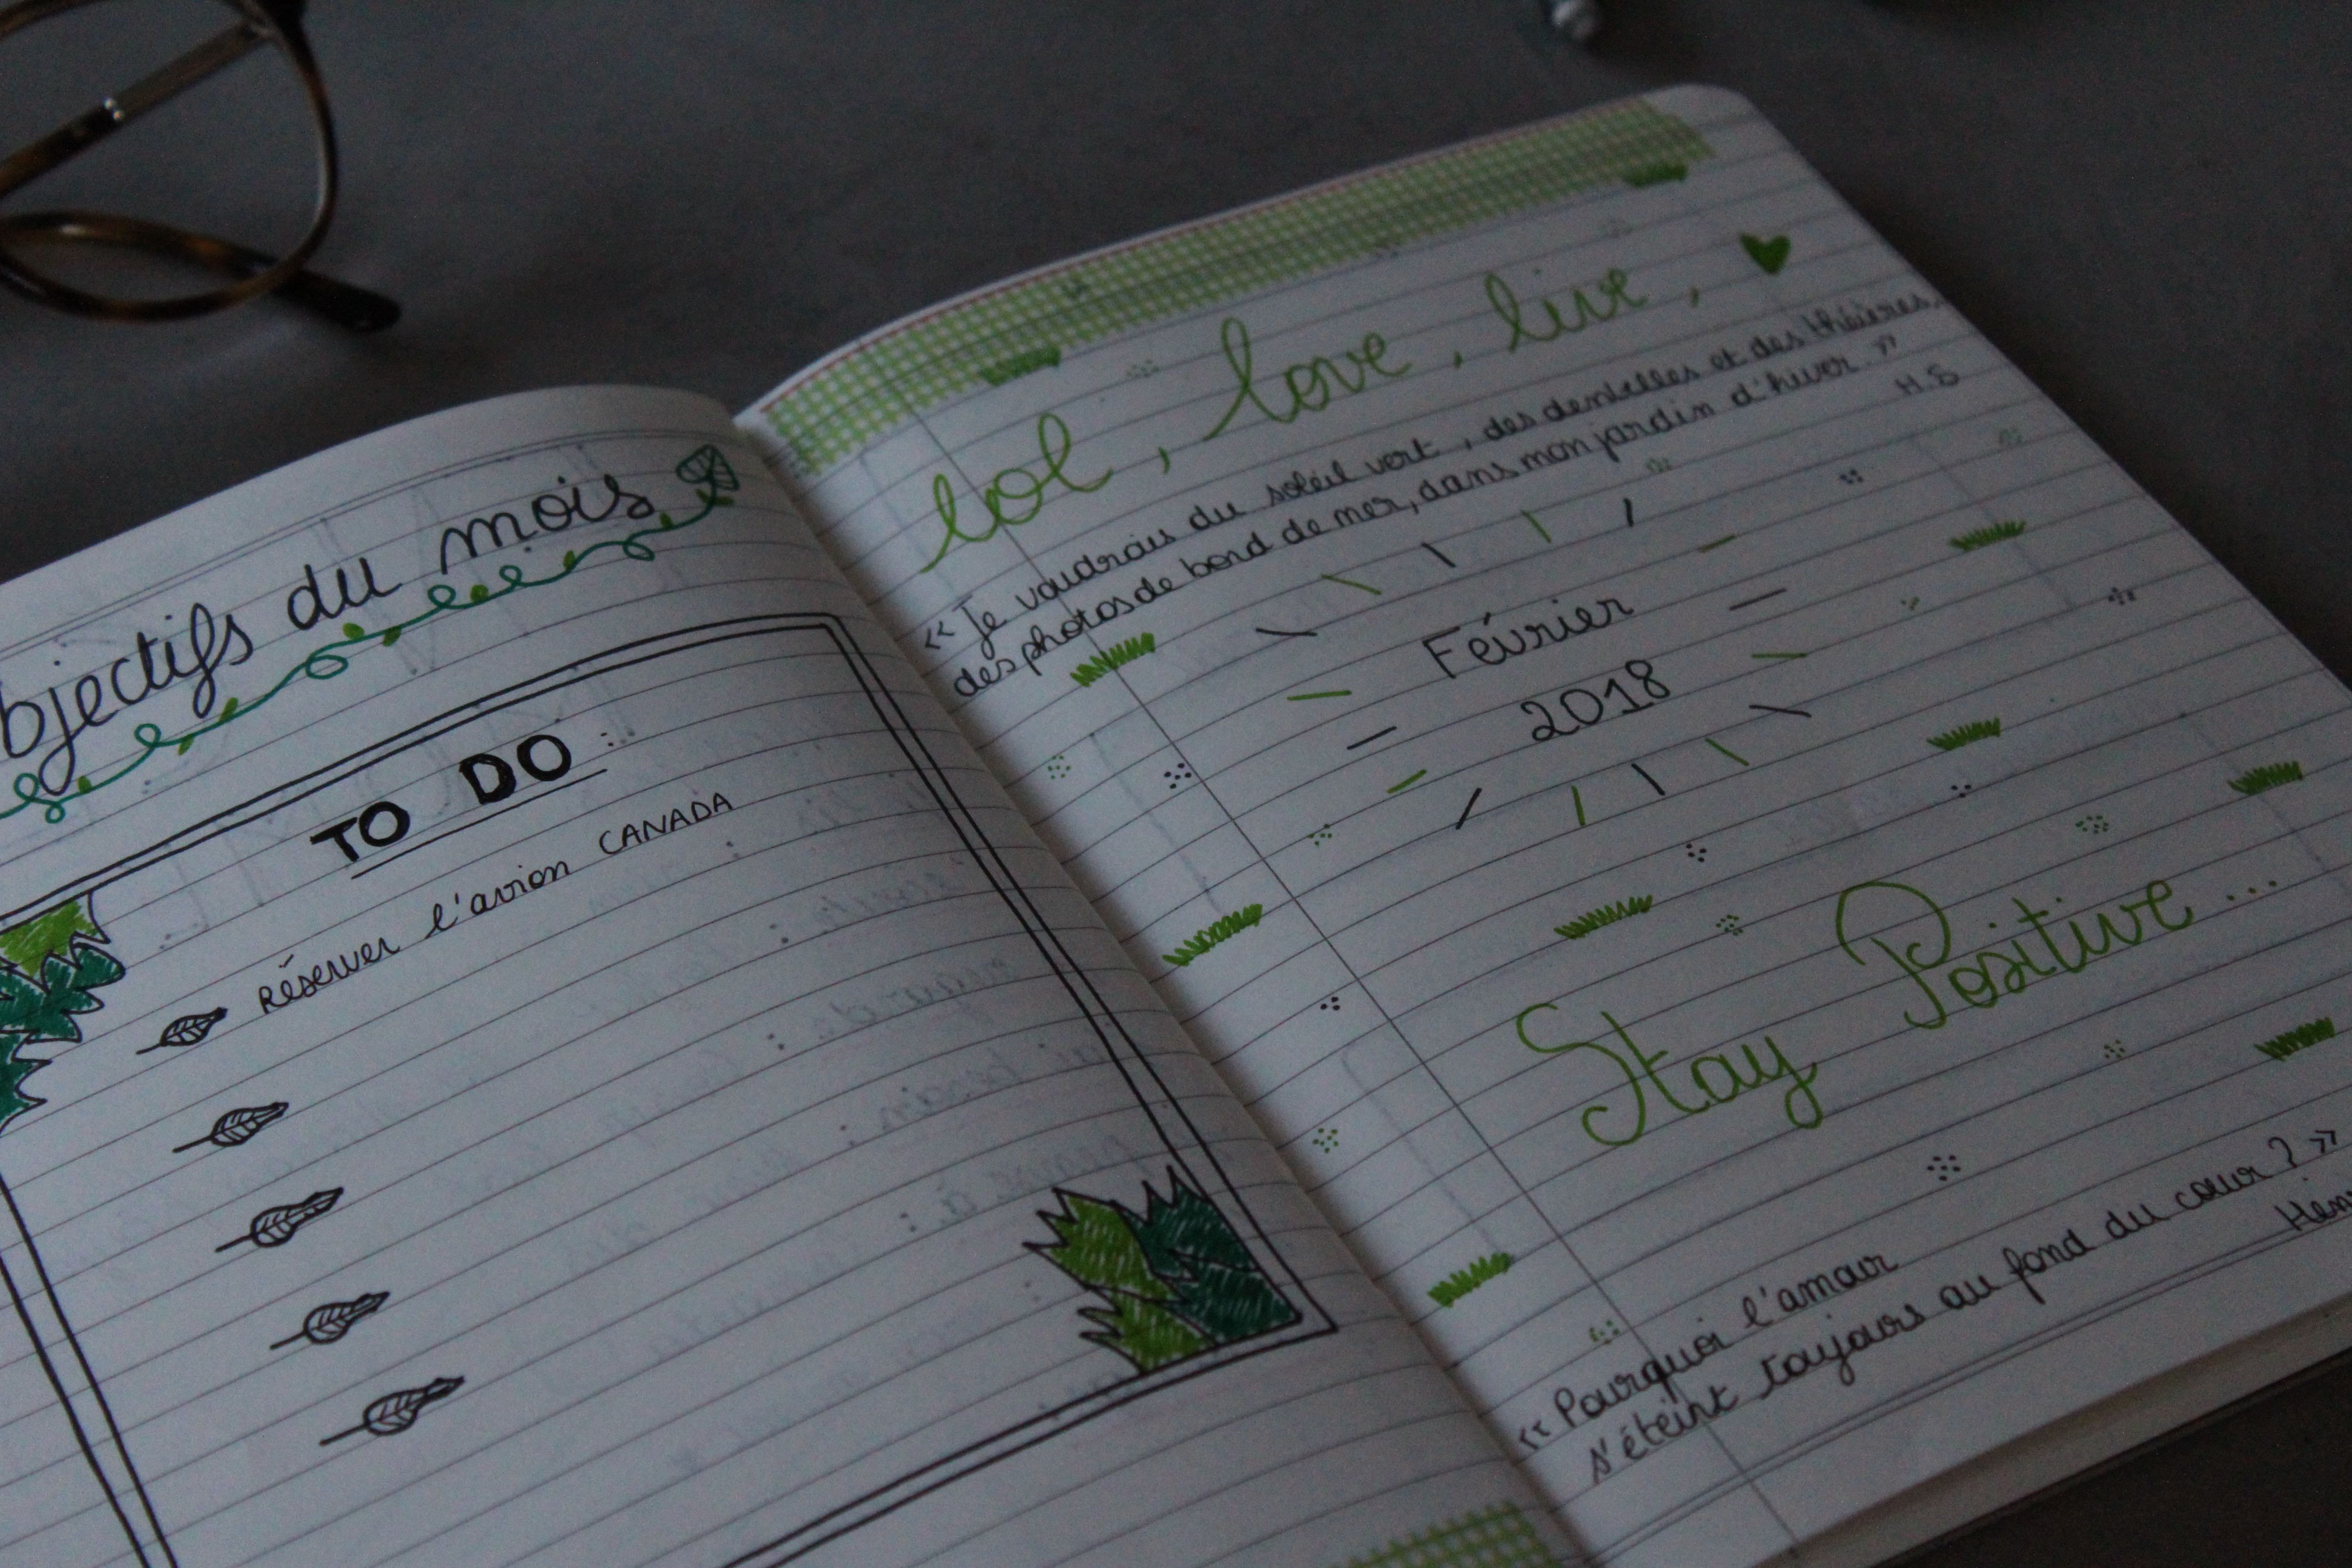 bjectifs du mois
TO DO :
Réserver l'avion CANADA
lol, love, live, ♥
« Je voudrais du soleil vert, des dentelles et des théières,
des photos de bord de mer, dans mon jardin d'hiver. »
H.S
Février
2018
Stay Positive ...
« Pourquoi l'amour
s'éteint toujours au fond du cœur ? »